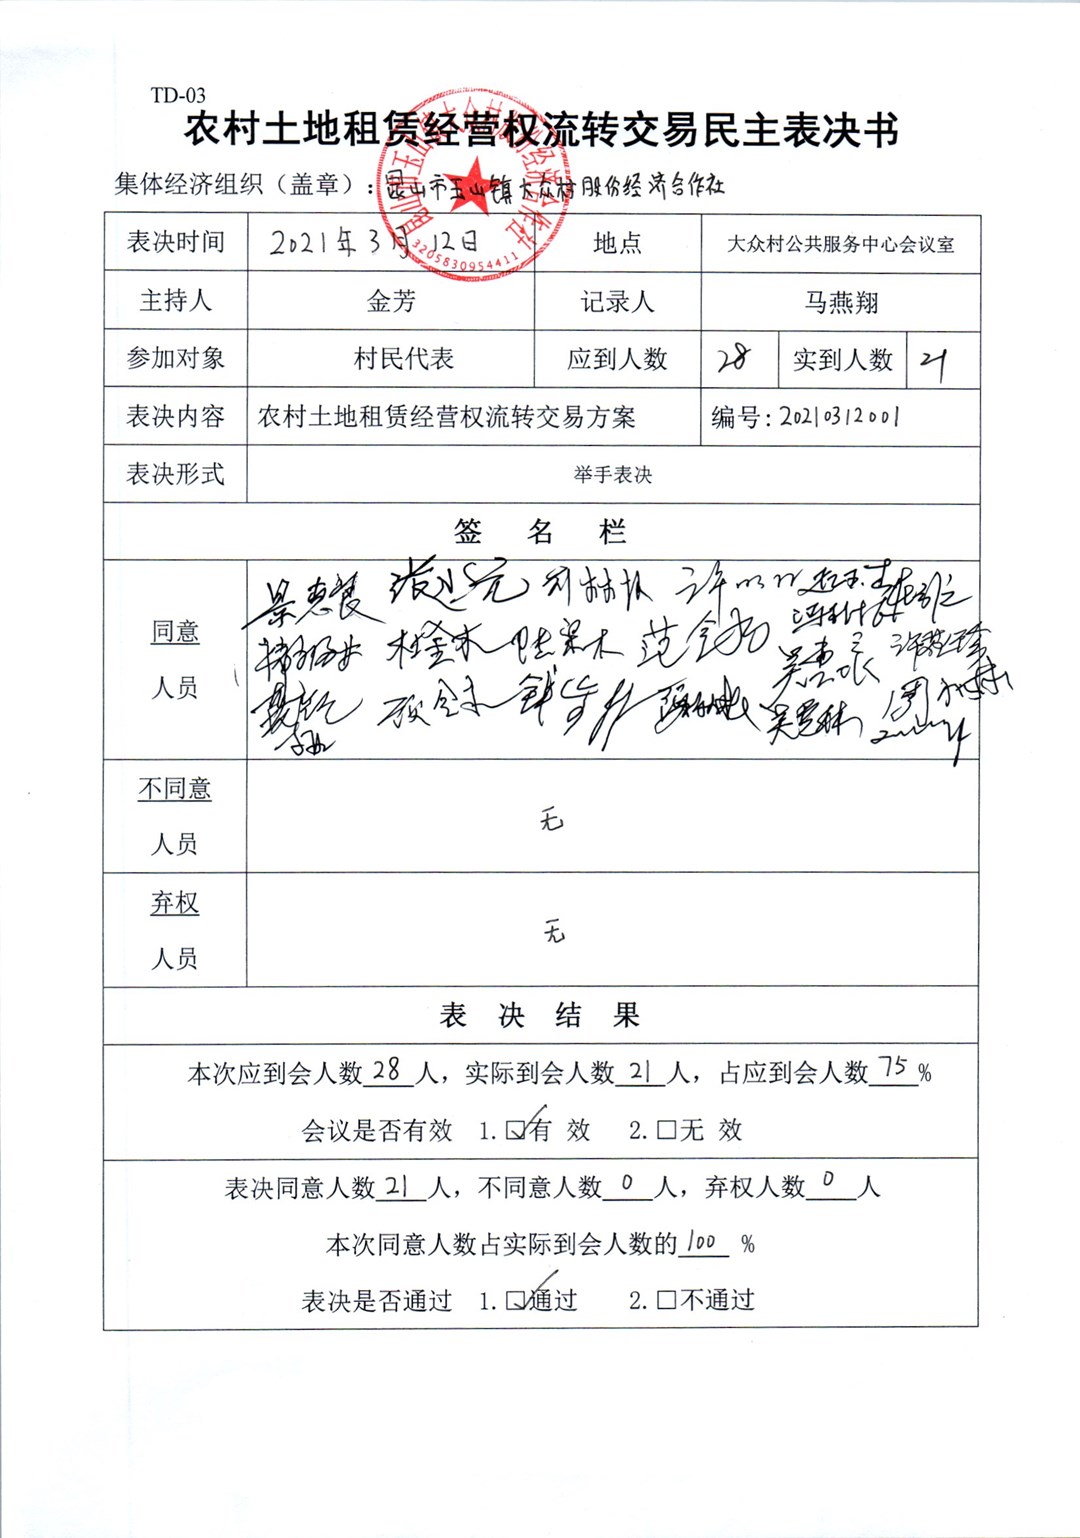 TD-03
农村土地租赁经营权流转交易民主表决书
集体经济组织（盖章）：昆山市玉山镇大众村股份经济合作社
昆山市玉山镇大众村股份经济合作社
3205830954411
表决时间 2021年3月12日 地点 大众村公共服务中心会议室
主持人 金芳 记录人 马燕翔
参加对象 村民代表 应到人数 28 实到人数 21
表决内容 农村土地租赁经营权流转交易方案 编号：20210312001
表决形式 举手表决
签 名 栏
同意
人员
范会
吴惠林
周
不同意
人员
无
弃权
人员
无
表 决 结 果
本次应到会人数28人，实际到会人数21人，占应到会人数75%
会议是否有效 1.☑有 效 2.□无 效
表决同意人数21人，不同意人数0人，弃权人数0人
本次同意人数占实际到会人数的100 %
表决是否通过 1.☑通过 2.□不通过